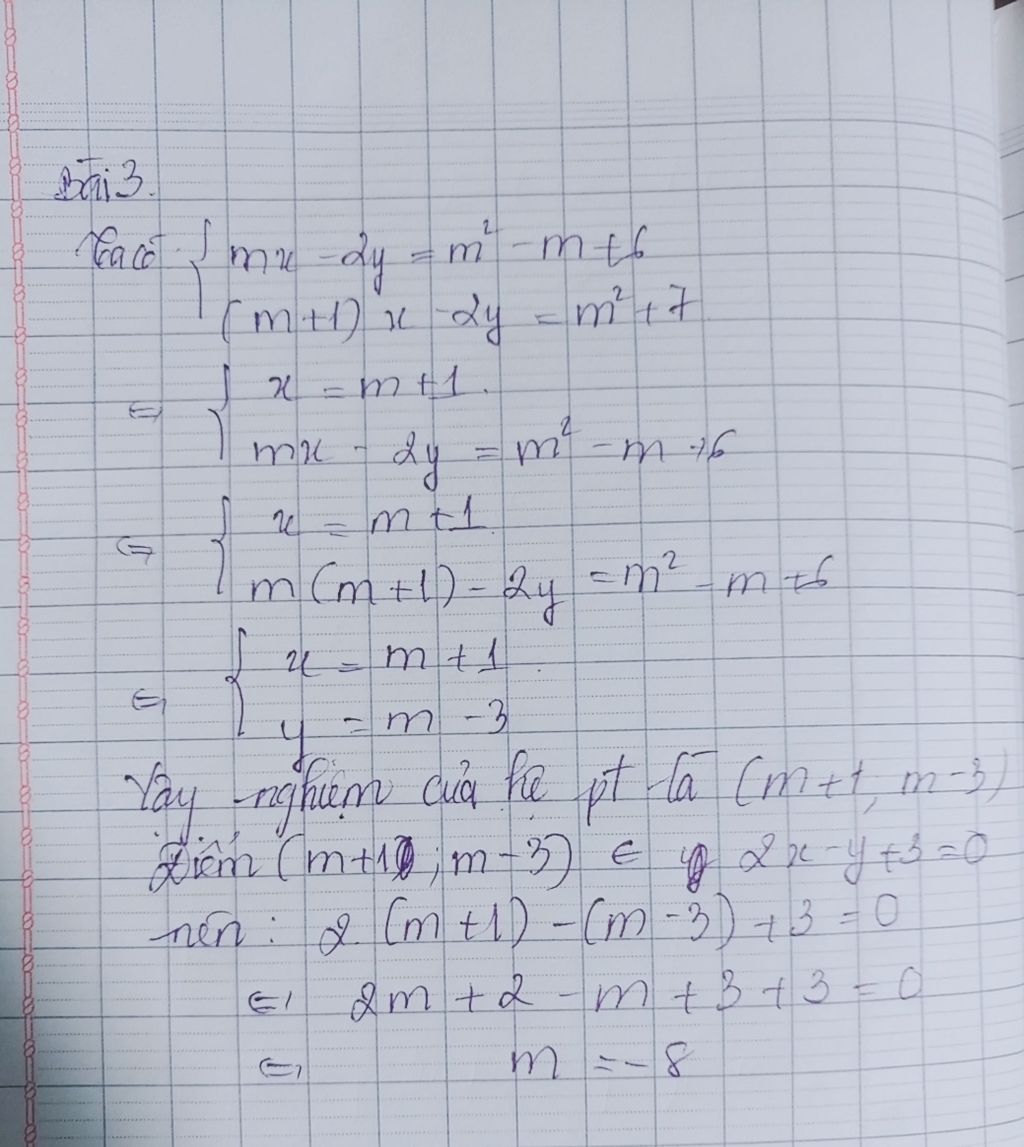 Bài 3.
Ta có { mx - 2y = m² - m + 6
(m+1) x - 2y = m² + 7
⇔ { x = m + 1.
mx - 2y = m² - m + 6
⇔ { x = m + 1
m (m+1) - 2y = m² - m + 6
⇔ { x = m + 1.
y = m - 3
Vậy nghiệm của hệ pt là (m+1, m-3)
Điểm (m+1; m-3) ∈ 2x - y + 3 = 0
nên: 2. (m+1) - (m-3) + 3 = 0
⇔ 2m + 2 - m + 3 + 3 = 0
⇔ m = - 8